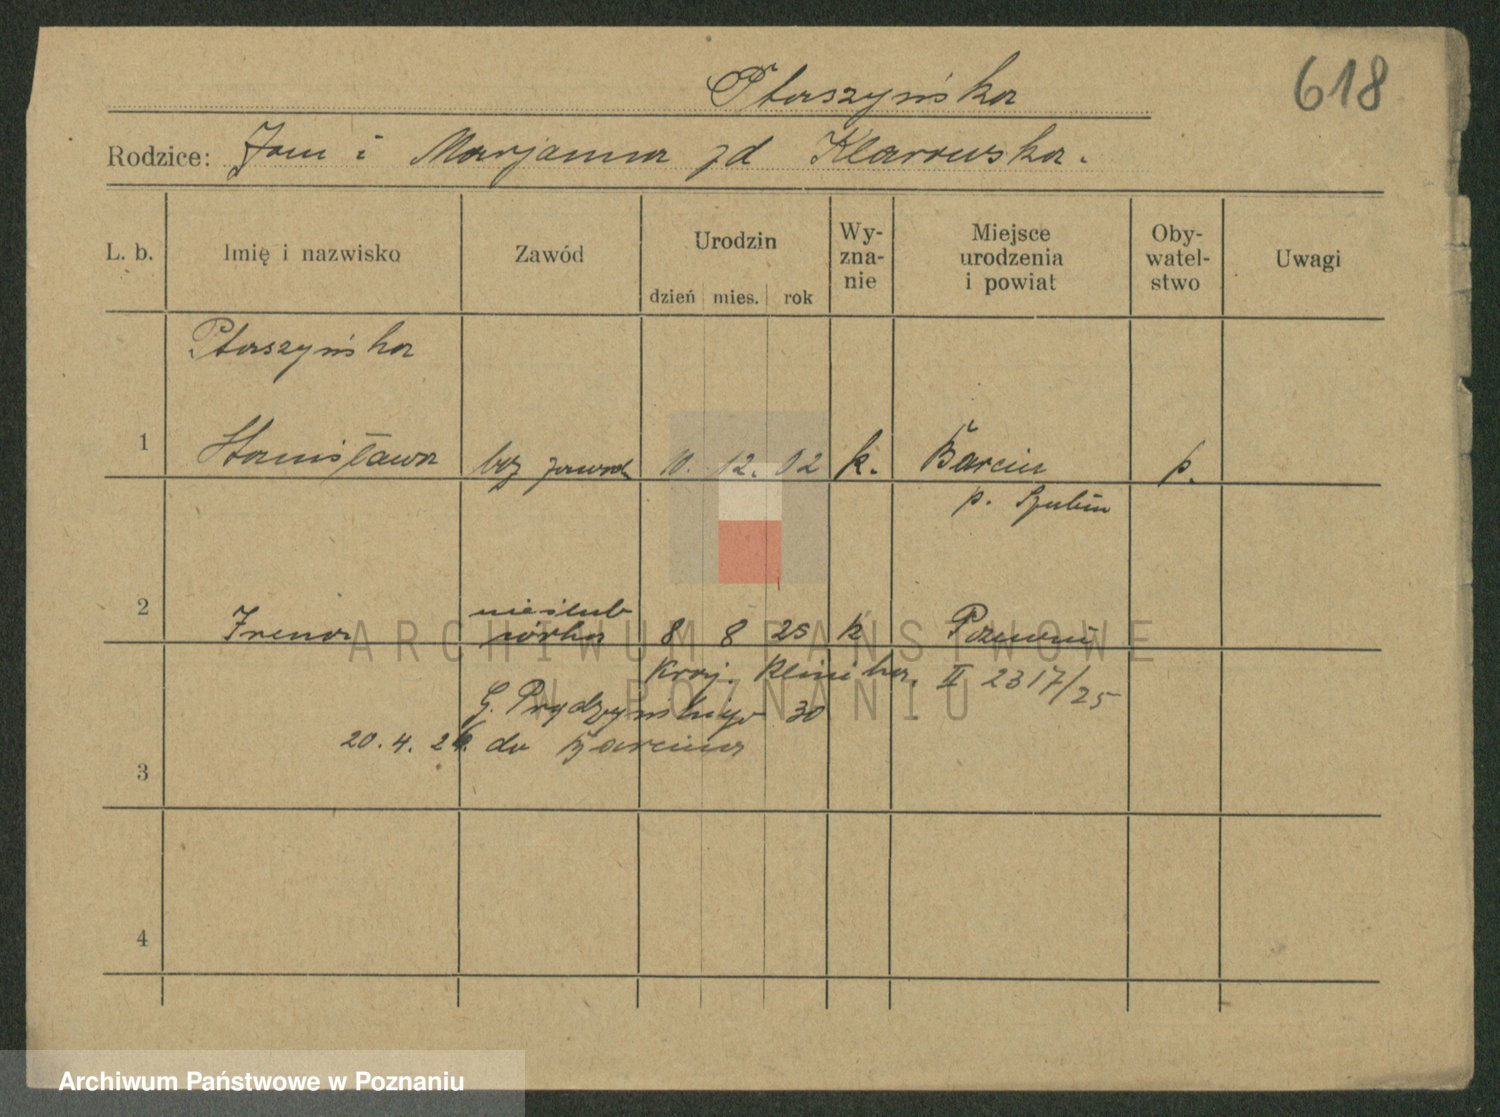 618
Ptaszyńska
Rodzice: Jan i Marjanna zd Klarowska.
L. b. Imię i nazwisko Zawód Urodzin dzień mies. rok Wy-zna-nie Miejsce urodzenia i powiat Oby-watel-stwo Uwagi
Ptaszyńska
1 Stanisława bez zawodu 10. 12. 02 k. Barcin p.
p. Szubin
nieślub
2 Irena córka 8 8 25 k Poznań
Kraj. Klinika. II 2317/25
G. Prądzyńskiego 30
20. 4. 26. do Barcina
3
4
ARCHIWUM PAŃSTWOWE
W POZNANIU
Archiwum Państwowe w Poznaniu